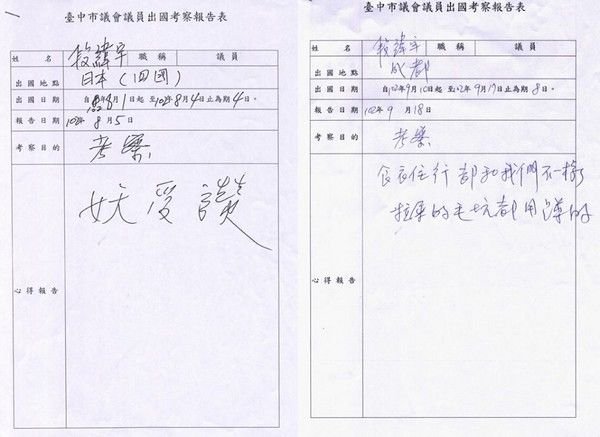 臺中市議會議員出國考察報告表
姓名 段緯宇 職稱 議員
出國地點 日本(四國)
出國日期 自 年8月1日起至102年8月4日止為期4日。
報告日期 102年8月5日
考察目的 考察
妖受讚
心得報告
臺中市議會議員出國考察報告表
姓名 段緯宇 職稱 議員
出國地點 成都
出國日期 自102年9月10日起至102年9月17日止為期8日。
報告日期 102年9月18日
考察目的 考察
食衣住行都和我們不一樣
拉屎的毛坑都用蹲的
心得報告